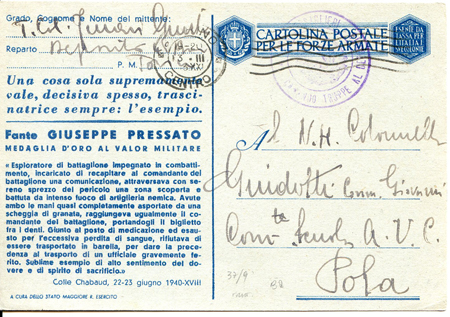 Grado, Cognome e Nome del mittente:
Reparto
P. M.
Una cosa sola supremamente
vale, decisiva spesso, trasci-
natrice sempre: l'esempio.
Fante GIUSEPPE PRESSATO
MEDAGLIA D'ORO AL VALOR MILITARE
« Esploratore di battaglione impegnato in combatti-
mento, incaricato di recapitare al comandante del
battaglione una comunicazione, attraversava con se-
reno sprezzo del pericolo una zona scoperta e
battuta da intenso fuoco di artiglieria nemica. Avute
ambo le mani quasi completamente asportate da una
scheggia di granata, raggiungeva ugualmente il co-
mandante del battaglione, portandogli il biglietto
fra i denti. Giunto al posto di medicazione ed esau-
sto per l'eccessiva perdita di sangue, rifiutava di
essere trasportato in barella, per dare la prece-
denza al trasporto di un ufficiale gravemente fe-
rito. Sublime esempio di alto sentimento del dove-
re e di spirito di sacrificio. »
Colle Chabaud, 22-23 giugno 1940-XVIII
A CURA DELLO STATO MAGGIORE R. ESERCITO
CARTOLINA POSTALE
PER LE FORZE ARMATE
ESENTE DA
TASSA PER
L'ITALIA E
CENTRO
TRUPPE AL
A
Al N. H. Colonnello
Guidotti Comm. Giovanni
Com.te Scuola A.V.C.
Pola
37/9